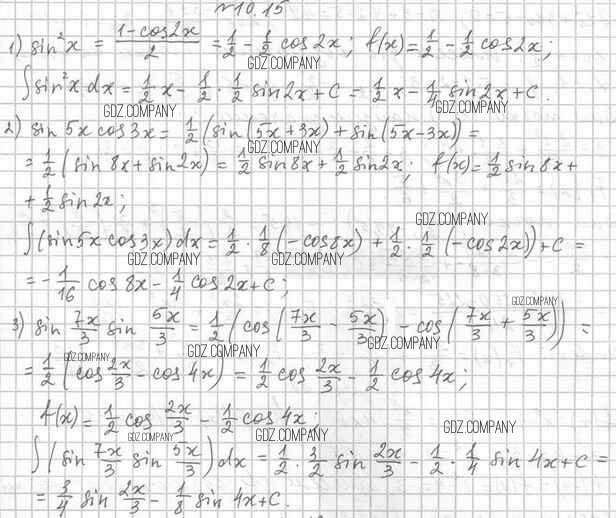 №10.15
1) sin²x = (1-cos2x)/2 = 1/2 - 1/2 cos2x; f(x)= 1/2 - 1/2 cos2x;
GDZ.COMPANY
∫sin²x dx = 1/2 x - 1/2 · 1/2 sin2x + C = 1/2 x - 1/4 sin2x + C.
GDZ.COMPANY GDZ.COMPANY
2) sin 5x cos3x = 1/2 (sin(5x+3x) + sin(5x-3x)) =
GDZ.COMPANY
= 1/2 (sin 8x + sin2x) = 1/2 sin8x + 1/2 sin2x; f(x) = 1/2 sin8x +
+ 1/2 sin2x;
GDZ.COMPANY
∫(sin5x cos3x)dx = 1/2 · 1/8 (-cos8x) + 1/2 · 1/2 (-cos2x)) + C =
GDZ.COMPANY GDZ.COMPANY
= - 1/16 cos 8x - 1/4 cos 2x + C;
GDZ.COMPANY
3) sin 7x/3 sin 5x/3 = 1/2 (cos(7x/3 - 5x/3) - cos(7x/3 + 5x/3)) =
GDZ.COMPANY GDZ.COMPANY GDZ.COMPANY
= 1/2 (cos 2x/3 - cos 4x) = 1/2 cos 2x/3 - 1/2 cos 4x;
f(x) = 1/2 cos 2x/3 - 1/2 cos 4x;
GDZ.COMPANY GDZ.COMPANY GDZ.COMPANY
∫(sin 7x/3 sin 5x/3)dx = 1/2 · 3/2 sin 2x/3 - 1/2 · 1/4 sin 4x + C =
= 3/4 sin 2x/3 - 1/8 sin 4x + C.
GDZ.COMPANY